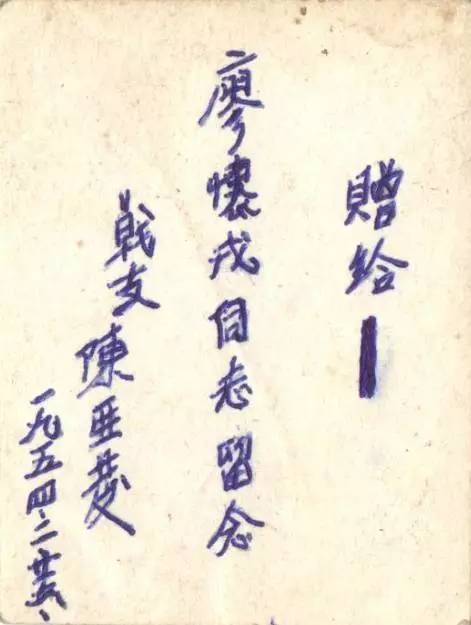 贈給
廖懷戎同志留念
戰友 陳亞
一九五四.二.廿五.